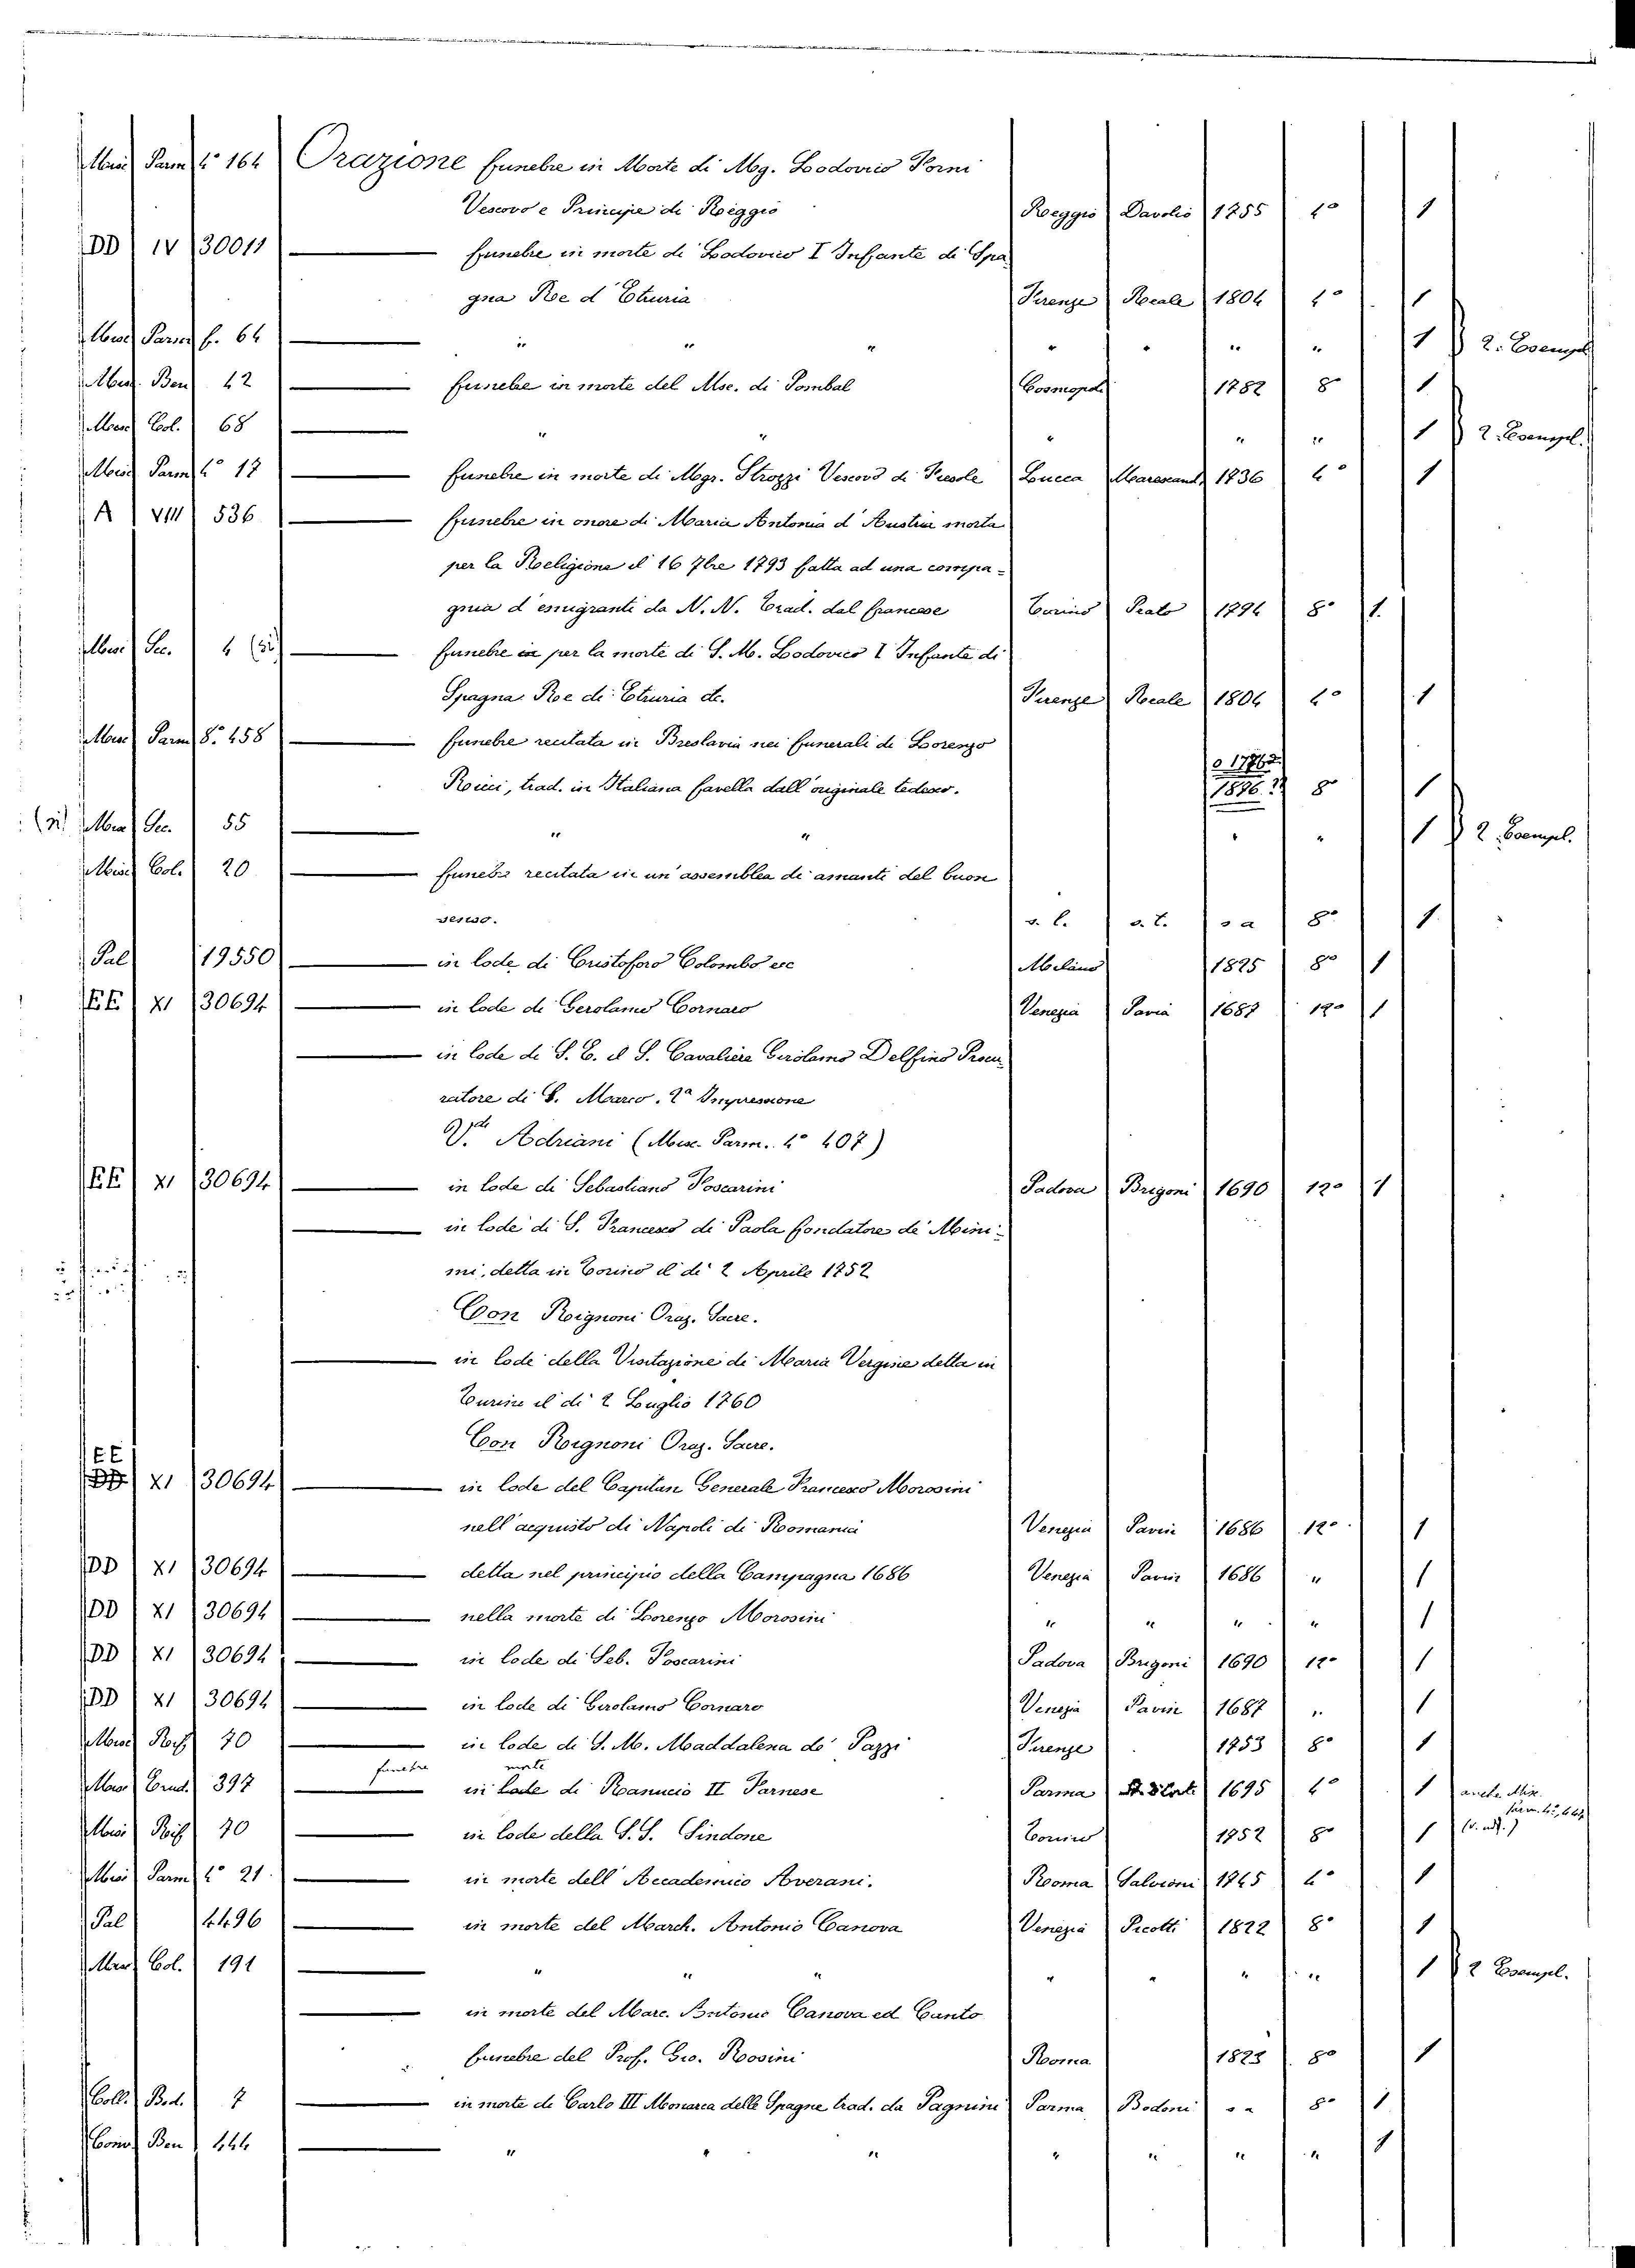 Misc Parm 4° 164 Orazione funebre in Morte di Mg. Lodovico Forni
Vescovo e Principe di Reggio Reggio Davolio 1755 4° 1
DD IV 30011 funebre in morte di Lodovico I Infante di Spa
gna Re d'Etruria Firenze Reale 1804 4° 1
Misc Parm f. 64 " " " " " " " 1 2. Esempl
Misc. Ben 42 funebre in morte del Mse. di Pombal Cosmopoli 1782 8° 1
Misc Col. 68 " " " " " 1 2. Esempl.
Misc Parm 4° 17 funebre in morte di Mgr. Strozzi Vescovo di Fiesole Lucca Marescand. 1736 4° 1
A VIII 536 funebre in onore di Maria Antonia d'Austria morta
per la Religione il 16 7bre 1793 fatta ad una compa-
gnia d'emigranti da N. N. Trad. dal francese Torino Prato 1794 8° 1.
Misc Sec. 4 (32) funebre in per la morte di S. M. Lodovico I Infante di
Spagna Re di Etruria etc. Firenze Reale 1804 4° 1
Misc Parm 8° 458 funebre recitata in Breslavia nei funerali di Lorenzo
o 1776?
Ricci, trad. in Italiana favella dall'originale tedesco. 1876.?? 8° 1
Misc Sec. 55 " " " " 1 2 Esempl.
Misc Col. 20 funebre recitata in un'assemblea di amanti del buon
senso. s. l. s. t. s a 8° 1.
Pal 19550 in lode di Cristoforo Colombo ecc Milano 1895 8° 1
EE XI 30694 in lode di Gerolamo Cornaro Venezia Pavin 1687 12° 1
in lode di S. E. il S. Cavaliere Girolamo Delfino Procu-
ratore di S. Marco. 2a Impressione
V.di Adriani (Misc. Parm. 4° 407)
EE XI 30694 in lode di Sebastiano Foscarini Padova Brigoni 1690 12° 1
in lode di S. Francesco di Paola fondatore de' Mini-
mi, detta in Torino il dì 2 Aprile 1752
Con Rignoni Oraz. Sacre.
in lode della Visitazione di Maria Vergine detta in
Turino il dì 2 Luglio 1760
Con Rignoni Oraz. Sacre.
EE
DD XI 30694 in lode del Capitan Generale Francesco Morosini
nell'acquisto di Napoli di Romania Venezia Pavin 1686 12° 1
DD XI 30694 detta nel principio della Campagna 1686 Venezia Pavin 1686 " 1
DD XI 30694 nella morte di Lorenzo Morosini " " " " 1
DD XI 30694 in lode di Seb. Foscarini Padova Brigoni 1690 12° 1
DD XI 30694 in lode di Girolamo Cornaro Venezia Pavin 1687 " 1
Misc Rif 70 in lode di S. M. Maddalena de' Pazzi Firenze 1753 8° 1
funebre morte
Misc Erud. 397 in lode di Ranucio II Farnese Parma 1695 4° 1 anche Misc.
Parm. 4°,
Misc Rif 70 in lode della S. S. Sindone Torino 1752 8° 1
Misc Parm 4° 21. in morte dell'Accademico Averani. Roma Salvioni 1745 4° 1
Pal 4496 in morte del March. Antonio Canova Venezia Picotti 1822 8° 1
Misc Col. 191 " " " " " " " 1 2 Esempl.
in morte del Marc. Antonio Canova ed Canto
funebre del Prof. Gio. Rosini Roma 1823 8° 1
Coll. Bod. 7 in morte di Carlo III Monarca delle Spagne trad. da Pagnini Parma Bodoni s a 8° 1
Conv Ben 444 " " " " " " " 1